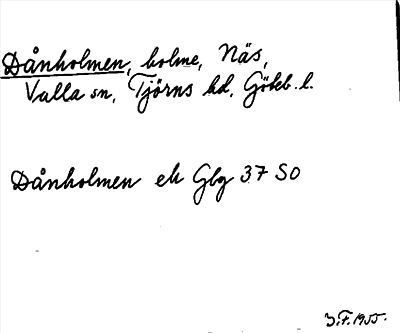 Dånholmen, holme, Näs,
Valla sn, Tjörns hd, Göteb. l.
Dånholmen ek Gbg 37 SO
J.F. 1955.